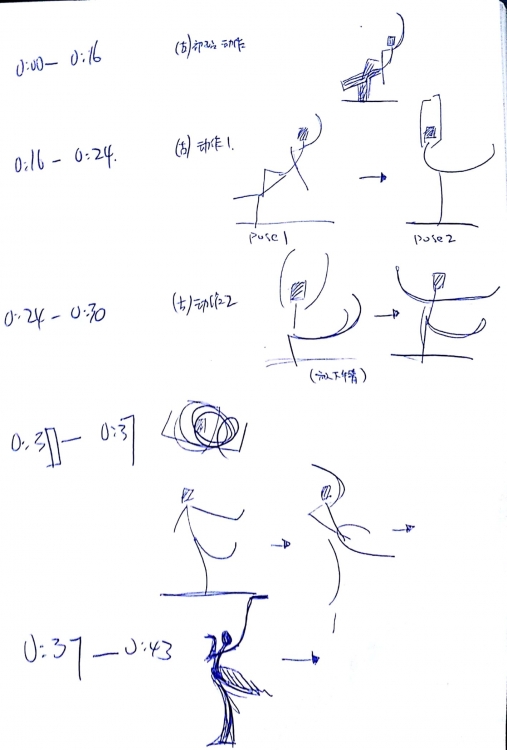 0:00 — 0:16 (古) 动作
0:16 — 0:24. (古) 动作1.
pose 1 pose 2
0:24 — 0:30 (古) 动作2
0:3 — 0:37
0:37 — 0:43